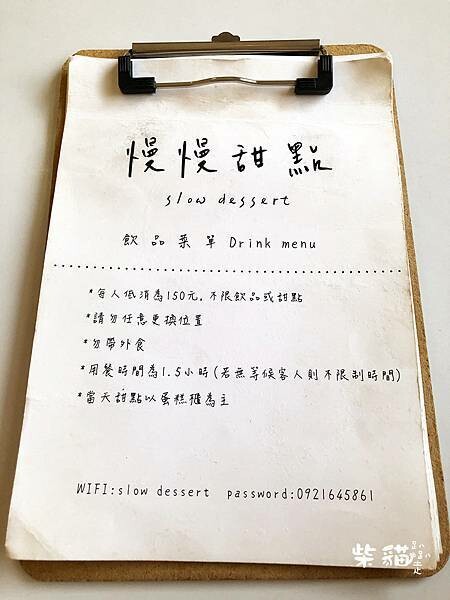 慢慢甜點
slow dessert
飲品菜單 Drink menu
*每人低消為150元,不限飲品或甜點
*請勿任意更換位置
*勿帶外食
*用餐時間為1.5小時(若無等候客人則不限制時間)
*當天甜點以蛋糕櫃為主
WIFI:slow dessert password:0921645861
柴貓趴趴走